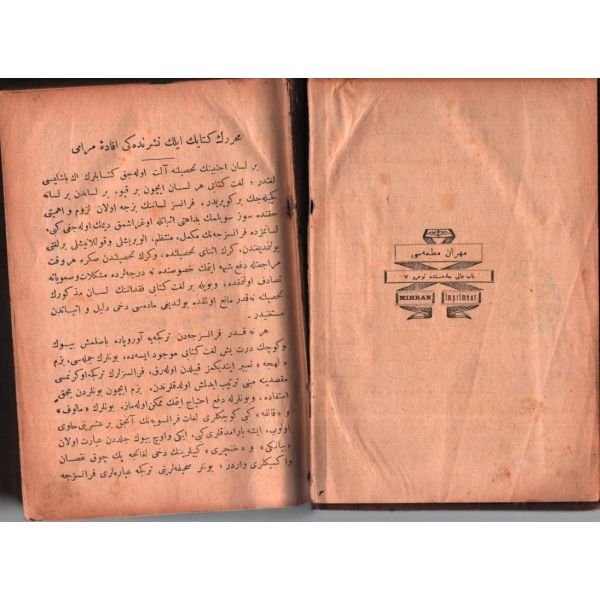 محررك كتابك ايلك نشرنده كى افادهٔ مرامى
بر لسان اجنبينك تحصيلنه آلت اوله‌جق كتابلرك اك باشليسى
لغتدر؛ لغت كتابى هر لسان ايچون بر قپو، بر لساندن بر لسانه
كچيله‌جك بر كوپريدر. فرانسز لسانك بزجه اولان لزوم و اهميتى
حقنده سوز سويلمك بداهتى اثباتله اوغراشمق ديمك اوله‌جغى كبى،
لسانمزده فرانسزجه‌نك مكمل، منتظم، الويريشلى و قوللانيشلى بر لغتى
بولنمديغندن، كرك اثناى تحصيلنده، وكرك تحصيلندن صكره هر وقت
مراجعتله دفع شبهه ايتمك خصوصنده نه درجه‌لرده مشكلات و صعوباته
تصادف اولنمقده، و بويله بر لغت كتابى فقدانتك لسان مذكورك
تحصيلنه نه‌قدر مانع اولمقده بولنديغى ماده‌سى دخى دليل و اثباتدن
مستغنيدر.
هر نه قدر فرانسزجه‌دن تركجه‌يه آوروپاده باصلمش بيوك
وكوچك درت بش لغت كتابى موجود ايسه‌ده، بونلرك جمله‌سى، بزم
«لهجه» تعبير ايتديكمز قبيلدن اوله‌رق، فرانسزلرك تركجه اوكرنمسى
مقصدينه مبنى ترتيب ايدلمش اولدقلرندن، بزم ايچون بونلردن بحق
استفاده، و بونلرله دفع احتياج ايتمك ممكن اوله‌ماز. بونلرك «مالوف»
و «قالفه» كبى كوچكلرى لغات فرانسويه‌نك آنجق بر عشرينى حاوى
اولوب، ايشه يارامدقلرى كبى، ايكى و اوچ بيوك جلددن عبارت اولان
«بيانكى» و «خنچرى» كبيلرينك دخى لغاتجه پك چوق نقصان
و اكسيكلرى واردر؛ بونلر صحيفه‌لرينى تركجه عباره‌لرى فرانسزجه
مهران مطبعه‌سى
باب عالى جاده‌سنده نومرو ٧
MIHRAN Imprimeur